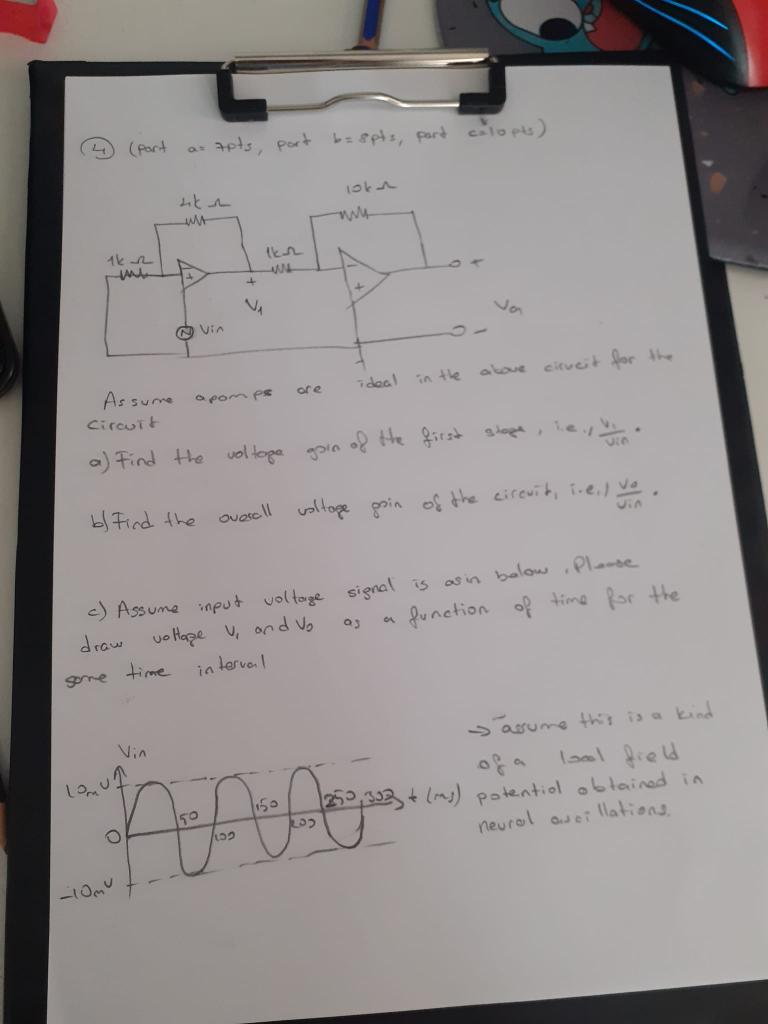 4 (part a= 7pts, part b= 8pts, part c=10pts)
4k Ω
10k Ω
1k Ω
1k Ω
-
+
+
+
+
V1
Vin
Vo
-
Assume opamps are ideal in the above circuit for the
circuit
a) Find the voltage gain of the first stage, i.e., V1/Vin.
b) Find the overall voltage gain of the circuit, i.e., Vo/Vin.
c) Assume input voltage signal is as in below. Please
draw voltage V1 and Vo as a function of time for the
same time interval
Vin
10mV
0
-10mV
50
100
150
200
250
300
t (ms)
→ assume this is a kind
of a local field
potential obtained in
neural oscillations.